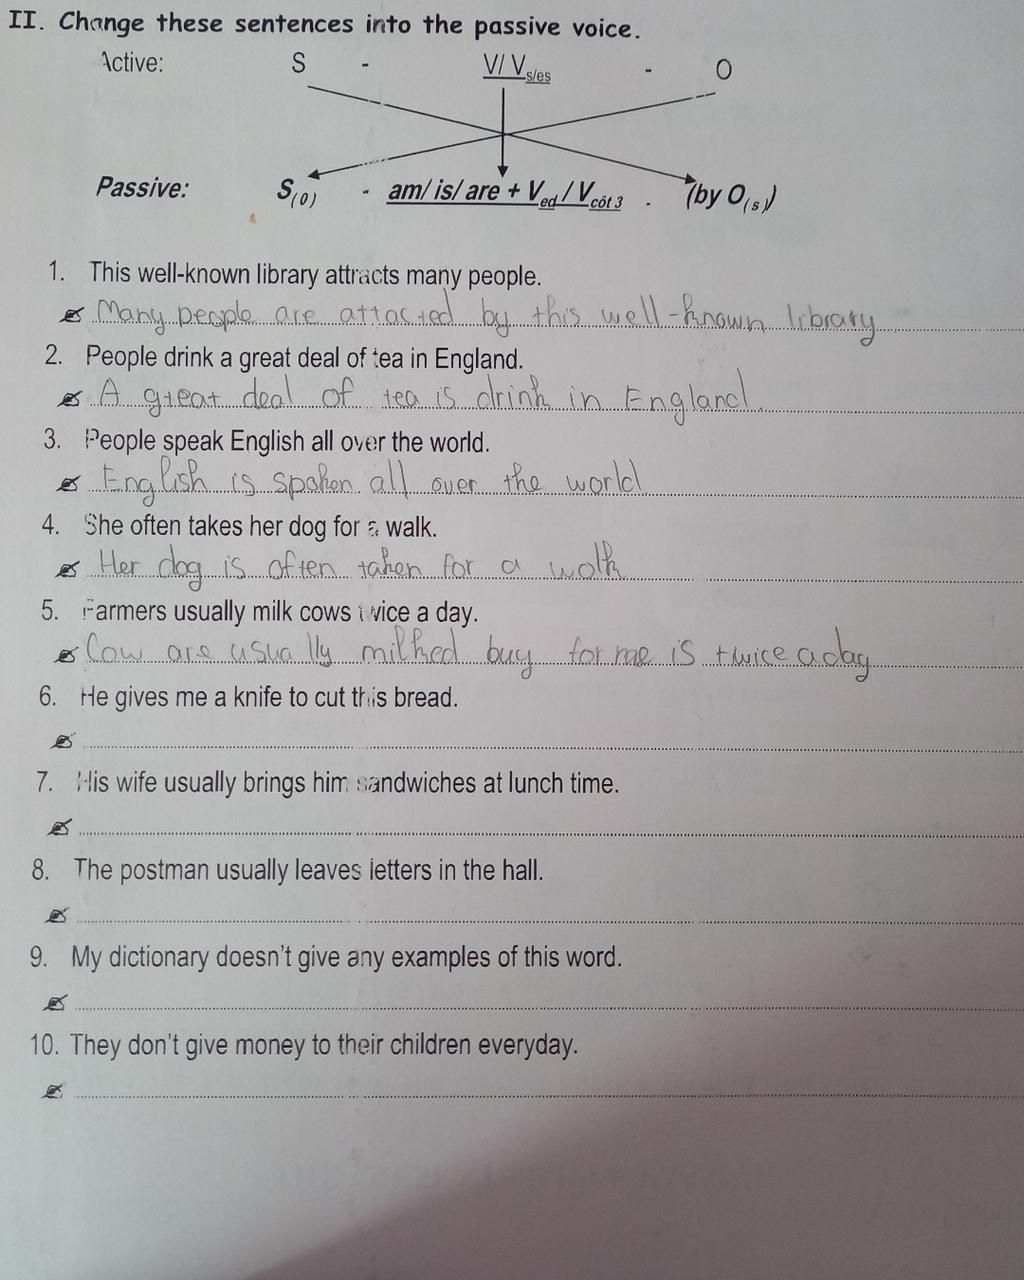 II. Change these sentences into the passive voice.
Active: S - V/ Vs/es - O
Passive: S(O) - am/ is/ are + Ved / Vcôt 3 - (by O(s))
1. This well-known library attracts many people.
Many people are attacted by this well-known library
2. People drink a great deal of tea in England.
A great deal of tea is drink in England.
3. People speak English all over the world.
English is spoken all over the world
4. She often takes her dog for a walk.
Her dog is often taken for a walk
5. Farmers usually milk cows twice a day.
Cow are usually milked buy for me is twice a day
6. He gives me a knife to cut this bread.
7. His wife usually brings him sandwiches at lunch time.
8. The postman usually leaves letters in the hall.
9. My dictionary doesn't give any examples of this word.
10. They don't give money to their children everyday.